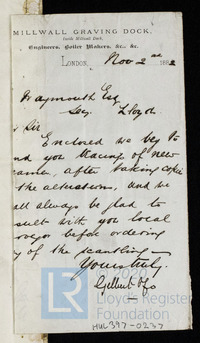 MILLWALL GRAVING DOCK,
Inside Millwall Dock,
Engineers, Boiler Makers, &c. &c.
LONDON, Nov 2nd 1882
Waymouth Esq
Secy Lloyds
Sir
Enclosed we beg to
nd you tracing of new
after taking copies
the alterations, and we
all always be glad to
sult with you local
veyor before ordering
y of the scantling
Yours truly.
Gilbert & Co
2020
Lloyd's Register
Foundation
HUL397-0237